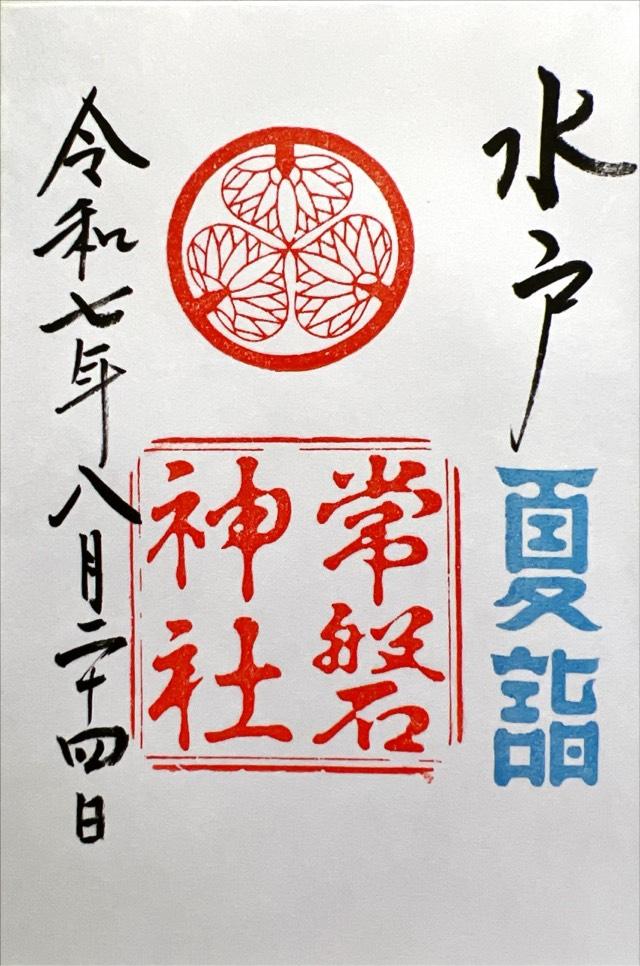 水戸
夏詣
常磐
神社
令和七年八月二十四日